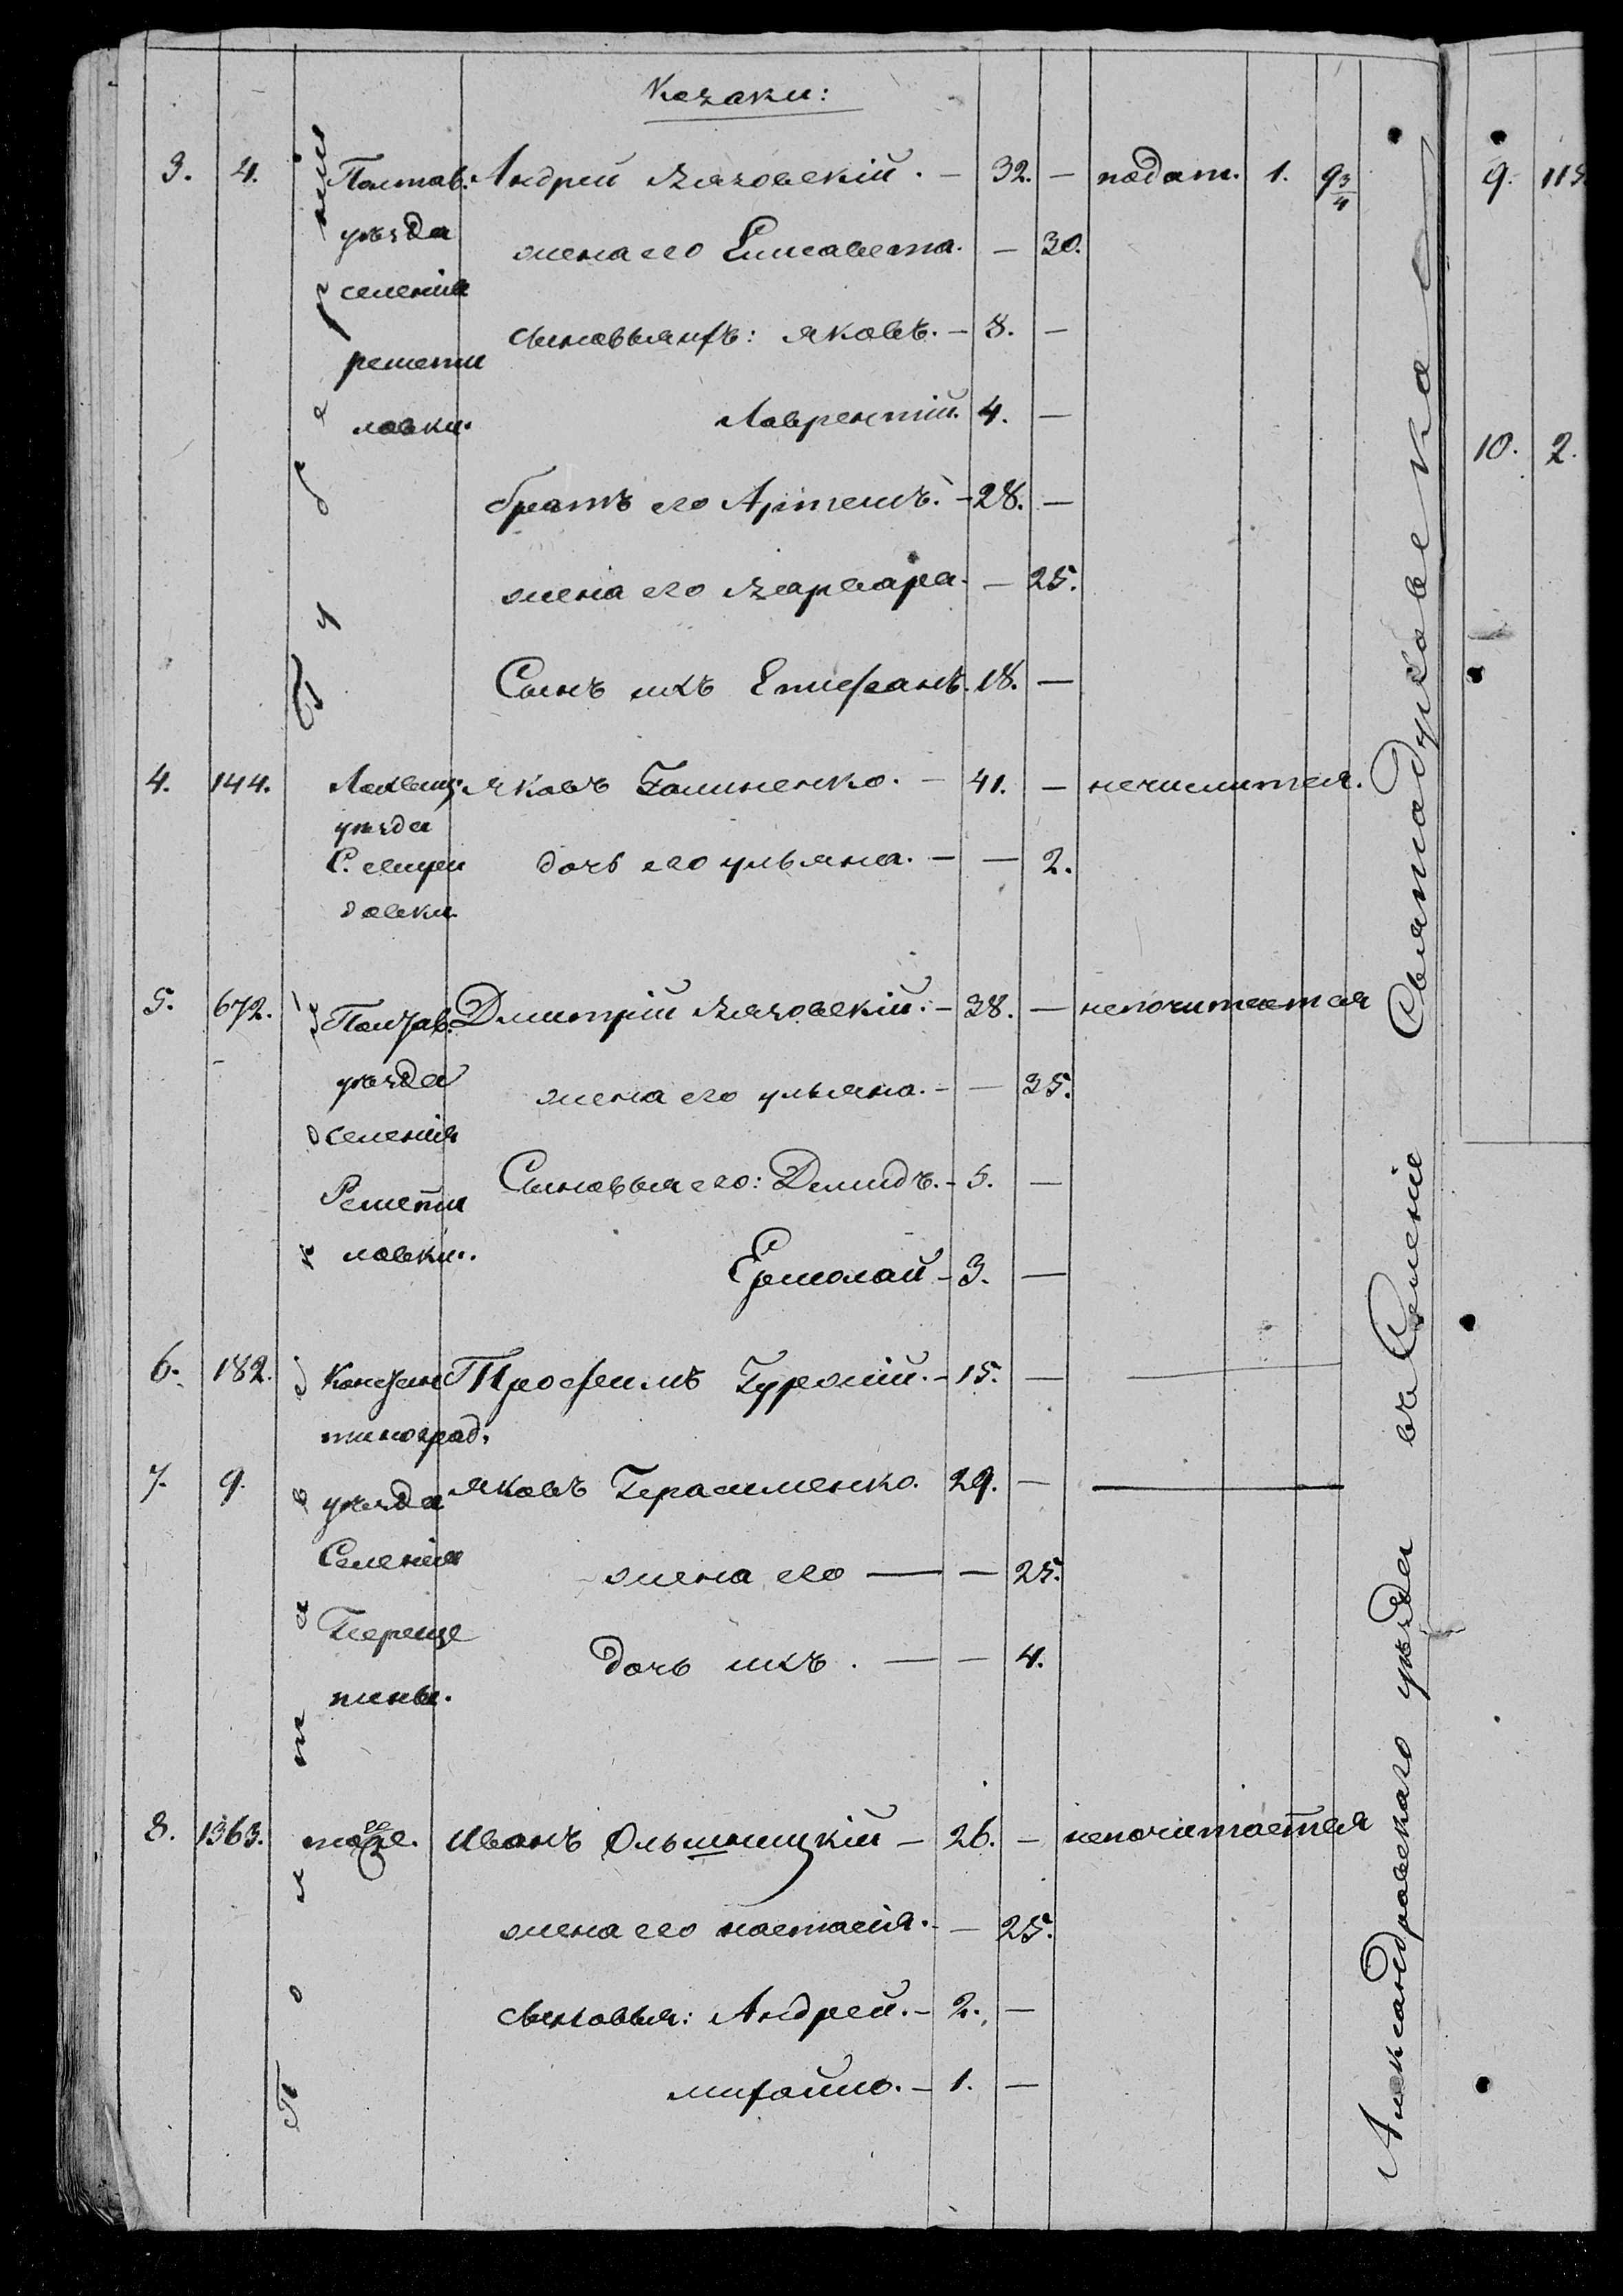 Козаки:
3. 4. Полтав. Андрей Вязовскій. — 32. — подат. 1. 9 3/4
уѣзда жена его Елисавета. — 30.
селенія
сыновья ихъ: Яковъ. — 8. —
решети
Лаврентій. 4. —
ловки.
братъ его Артемъ. — 28. —
жена его Варвара. — 25.
Сынъ ихъ Епифанъ. 18. —
4. 144. Яковъ Галиненко. — 41. — нечислится.
уѣзда
дочь его ульяна. — — 2.
довки
5. 672. Полтав. Дмитрій Вязовскій. — 38. — непочитается
уѣзда жена его ульяна. — — 35.
селенія
Решети Сыновья его: Демидъ. — 5. —
ловки. Ермолай — 3. —
6. 182. Констан Трофимъ — 15. — —
тиноград.
7. 9. уѣзда Яковъ Герасименко. 29. — —
Селенія жена его — — 25.
Переще
дочь ихъ. — — 4.
пины.
8. 1363. тоже. Иванъ Ольшницкій — 26. — непочитается
жена его настасія. — — 25.
сыновья: Андрей. — 2. —
михайло. — 1. —
Полтавской Губерніи
Александровскаго уѣзда въ Селеніе Святодуховско
9. 115
10. 2.